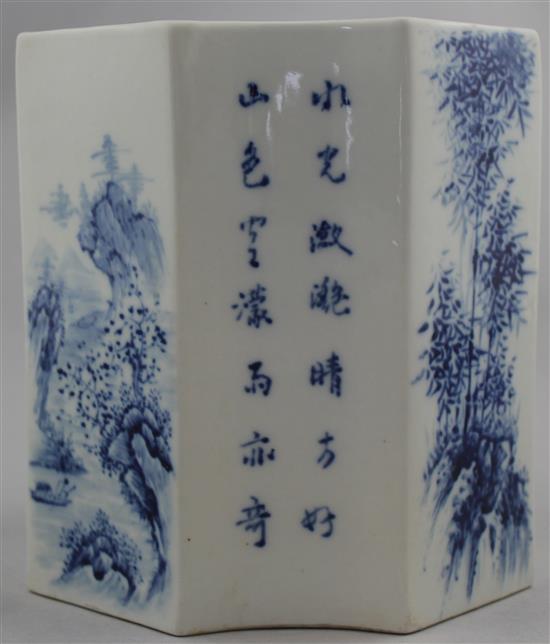 水光瀲灔晴方好
山色空濛雨亦奇